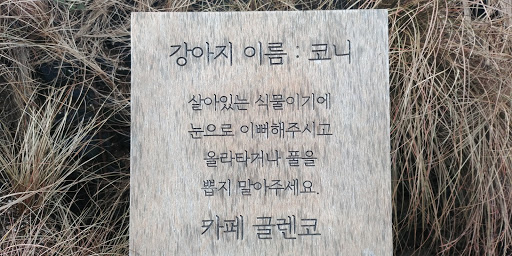 강아지 이름 : 코니
살아있는 식물이기에
눈으로 이뻐해주시고
올라타거나 풀을
뽑지 말아주세요.
카페 글렌코